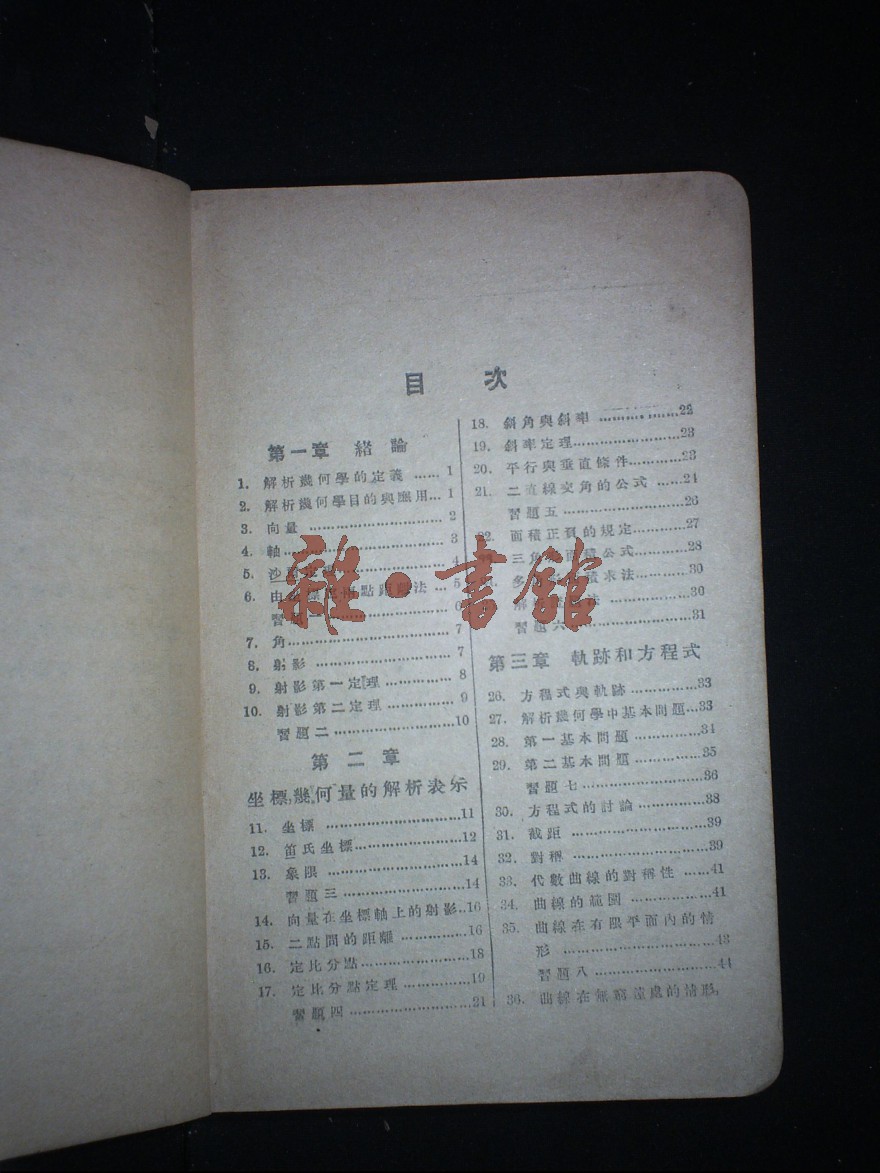 目 次
第一章 緒論
1. 解析幾何學的定義 …… 1
2. 解析幾何學目的與應用… 1
3. 向量 …… 2
4. 軸 …… 3
5. 沙 …… 4
6. 由 點距 法 … 5
習題 …… 6
7. 角 …… 7
8. 射影 …… 7
9. 射影第一定理 …… 8
10. 射影第二定理 …… 9
習題二 …… 10
第二章
坐標,幾何量的解析表示
11. 坐標 …… 11
12. 笛氏坐標 …… 12
13. 象限 …… 14
習題三 …… 14
14. 向量在坐標軸上的射影..16
15. 二點間的距離 …… 16
16. 定比分點 …… 18
17. 定比分點定理 …… 19
習題四 …… 21
18. 斜角與斜率 …… 22
19. 斜率定理 …… 23
20. 平行與垂直條件 …… 23
21. 二直線交角的公式 …… 24
習題五 …… 26
22. 面積正負的規定 …… 27
三角 面積公式 …… 28
多 積求法 …… 30
解 法 …… 30
習題六 …… 31
第三章 軌跡和方程式
26. 方程式與軌跡 …… 33
27. 解析幾何學中基本問題…33
28. 第一基本問題 …… 34
29. 第二基本問題 …… 35
習題七 …… 36
30. 方程式的討論 …… 38
31. 截距 …… 39
32. 對稱 …… 39
33. 代數曲線的對稱性 …… 41
34. 曲線的範圍 …… 41
35. 曲線在有限平面內的情
形 …… 43
習題八 …… 44
36. 曲線在無窮遠處的情形,
雜·書館